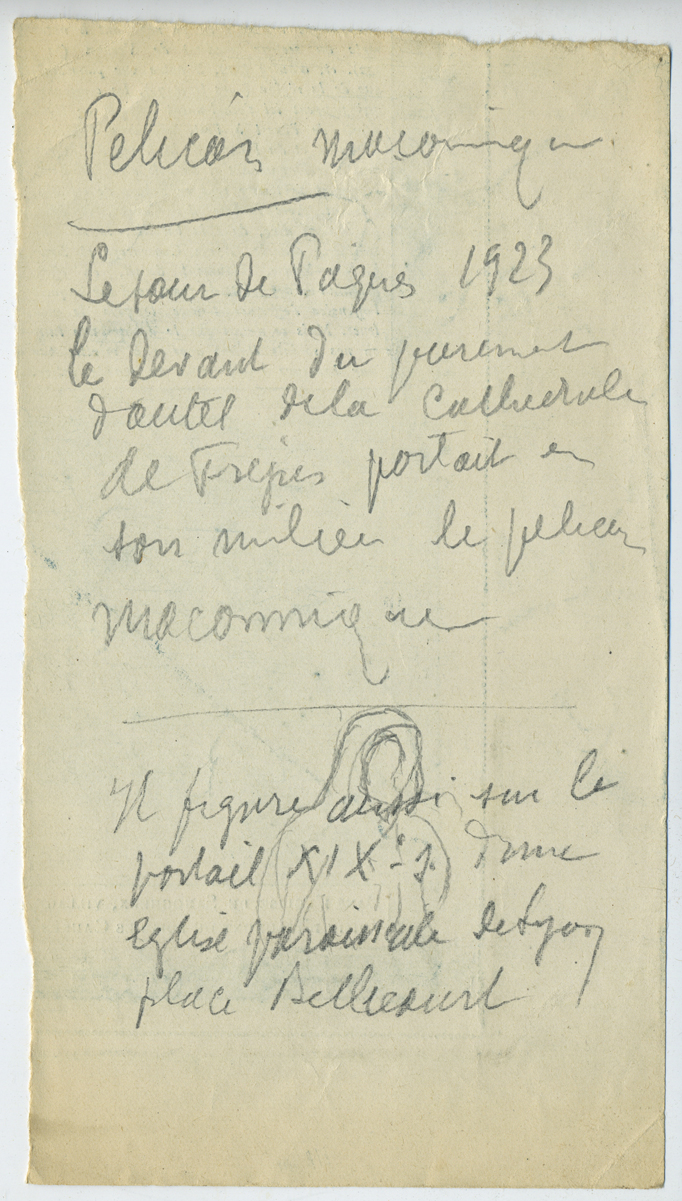 Pelican maçonnique
Le jour de Pâques 1923
le devant du parement
d'autel de la Cathedrale
de Frejus portait en
son milieu le pelican
maconnique
Il figure aussi sur le
portail XIXe s. d'une
eglise paroissiale de Lyon
place Bellecourt